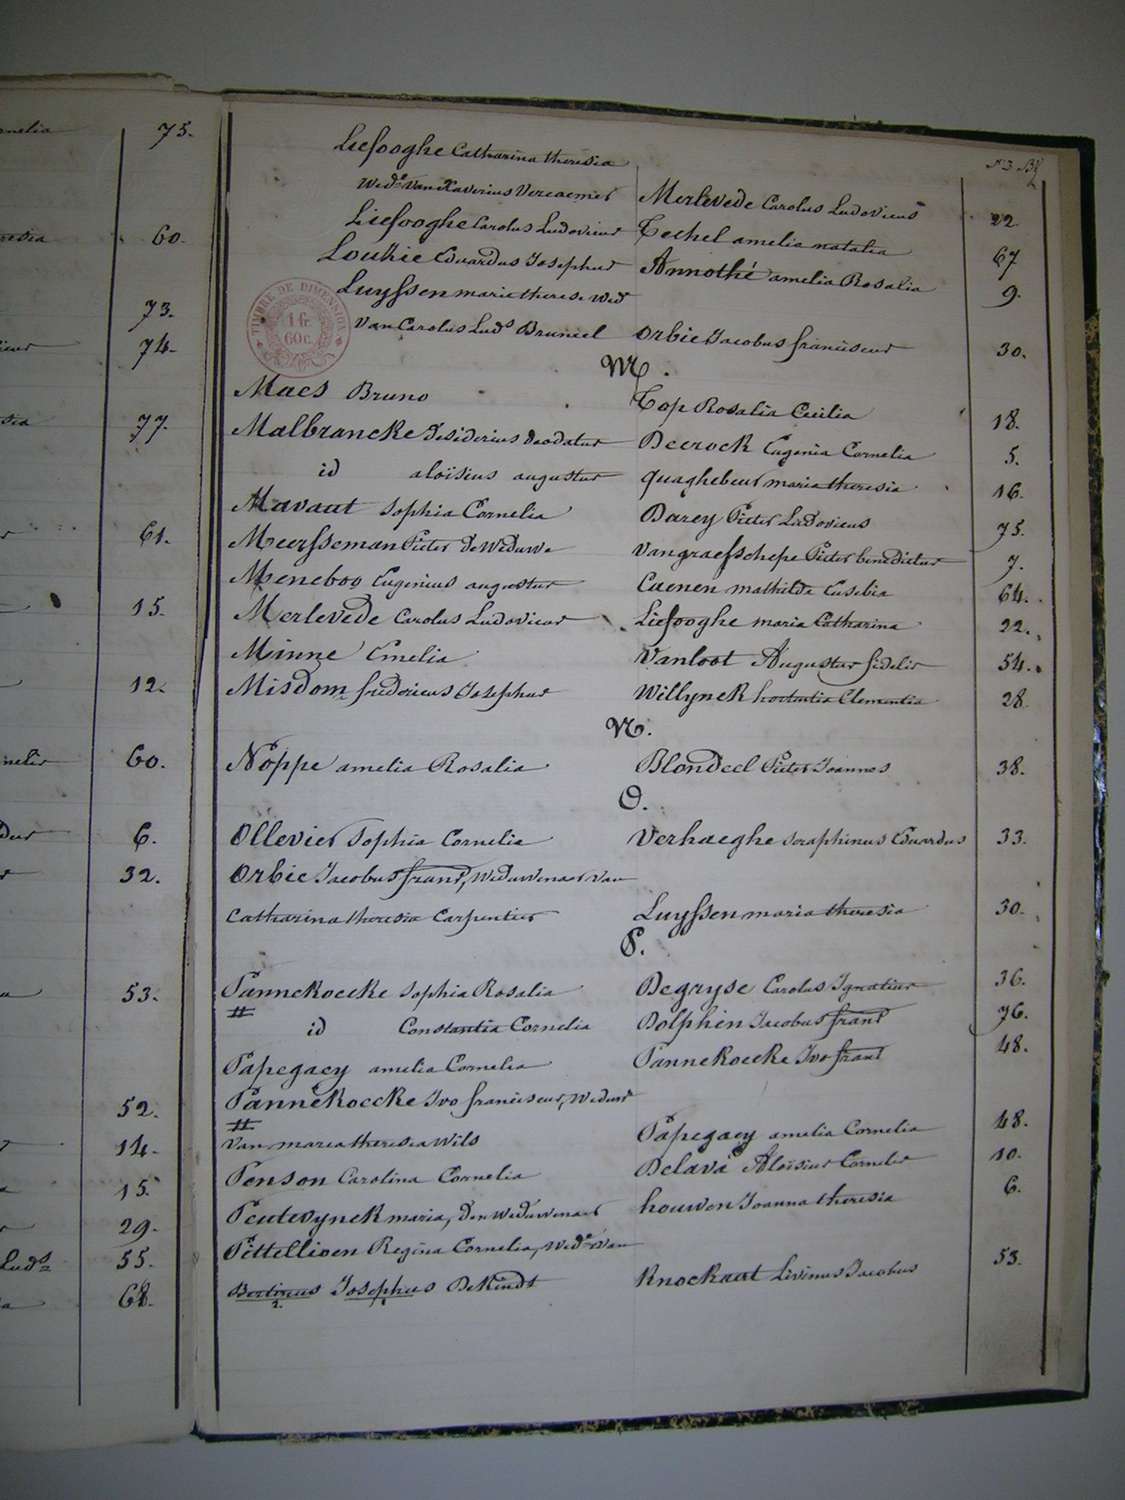 rnelia 75.
resia 60.
73.
74.
sia 77.
61.
15.
12.
nelis 60.
dus 6.
32.
53.
52.
14.
15.
29.
Luds 55.
68.
N 3
Liefooghe Catharina theresia
Wede Van Xaverius Vercaemer Merlevede Carolus Ludovicus 22
Liefooghe Carolus Ludovicus Techel amelia natalia 67
Louwie Eduardus Josephus Annothé amelia Rosalia 9.
Luyssen maria therese Wed
Van Carolus Luds Bruneel Orbie Jacobus franciscus 30.
TIMBRE DE DIMENSION
1 fr.
60 c.
M.
Maes Bruno Top Rosalia Cecilia 18.
Malbrancke desiderius deodatus Decrock Eugenia Cornelia 5.
id aloïsius augustus quaghebeur maria theresia 16.
Mavaut Sophia Cornelia Darey Pieter Ludovicus 75.
Meersseman Pieter De Weduwe Vangraefschepe Pieter benedictus 7.
Meneboo Eugenius augustus Caenen mathilde Eusebia 64.
Merlevede Carolus Ludovicus Liefooghe maria Catharina 22.
Minne Emelia Vanloot Augustus fidelis 54.
Misdom fredericus Josephus Willynck hortentia Clementia 28
N.
Noppe amelia Rosalia Blondeel Pieter Joannes 38.
O.
Ollevier Sophia Cornelia Verhaeghe Seraphinus Eduardus 33.
Orbie Jacobus frans, Weduwenaer Van
Catharina theresia Carpentier Luyssen maria theresia 30.
P.
Pannekoecke Sophia Rosalia Degryse Carolus Ignatius 36.
id Constantia Cornelia Dolphen Jacobus frans 76.
Papegaey amelia Cornelia Pannekoecke Ivo frans 48.
Pannekoecke Ivo franciscus, Weduwr
van maria theresia Wils Papegaey amelia Cornelia 48.
Penson Carolina Cornelia Delava Aloïsius Cornelis 10.
Peutevynck maria, den Weduwenaer houwen Joanna theresia 6.
Pittellioen Regina Cornelia, Wede Van
Bertinus Josephus DeKindt Knockaert Livinus Jacobus 53.
2. 1